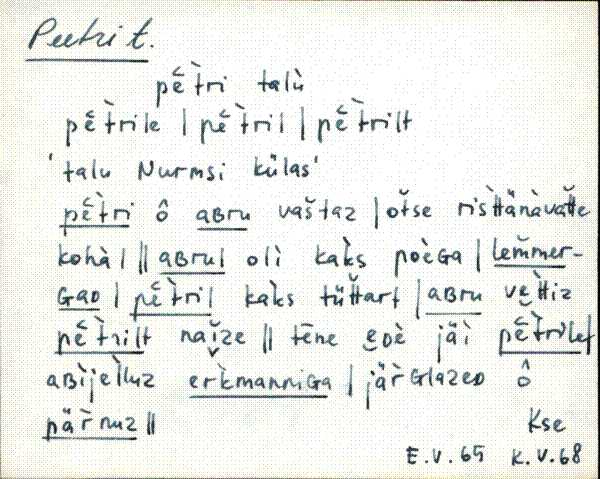 Peetri t.
pḗ̆t̀ri talù
pḗ̆t̀rile | pḗ̆t̀ril | pḗ̆t̀rilt
'talu Nurmsi külas'
pḗ̆t̀ri ô ABru vaštaz | otse
kohàl || ABrul oli kak̀s poèGa | lem̆mer-
GaD | pḗ̆t̀ril kak̀s tüt̆tart | ABru vet̆tiz
pḗ̆t̀rilt naĭze || tēne eDè jäi̇̀
ABijelluz erk̀manniGa | jär̀GlazeD ô
pär̀nuz ||
Kse
E.V.65 K.V.68